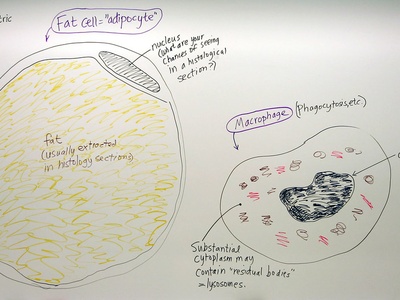 tric
Fat cell = "adipocyte"
nucleus
(what are your
chances of seeing
in a histological
section?)
fat
(usually extracted
in histology sections)
Macrophage
(Phagocytosis, etc.)
Substantial
cytoplasm may
contain "residual bodies"
= lysosomes.